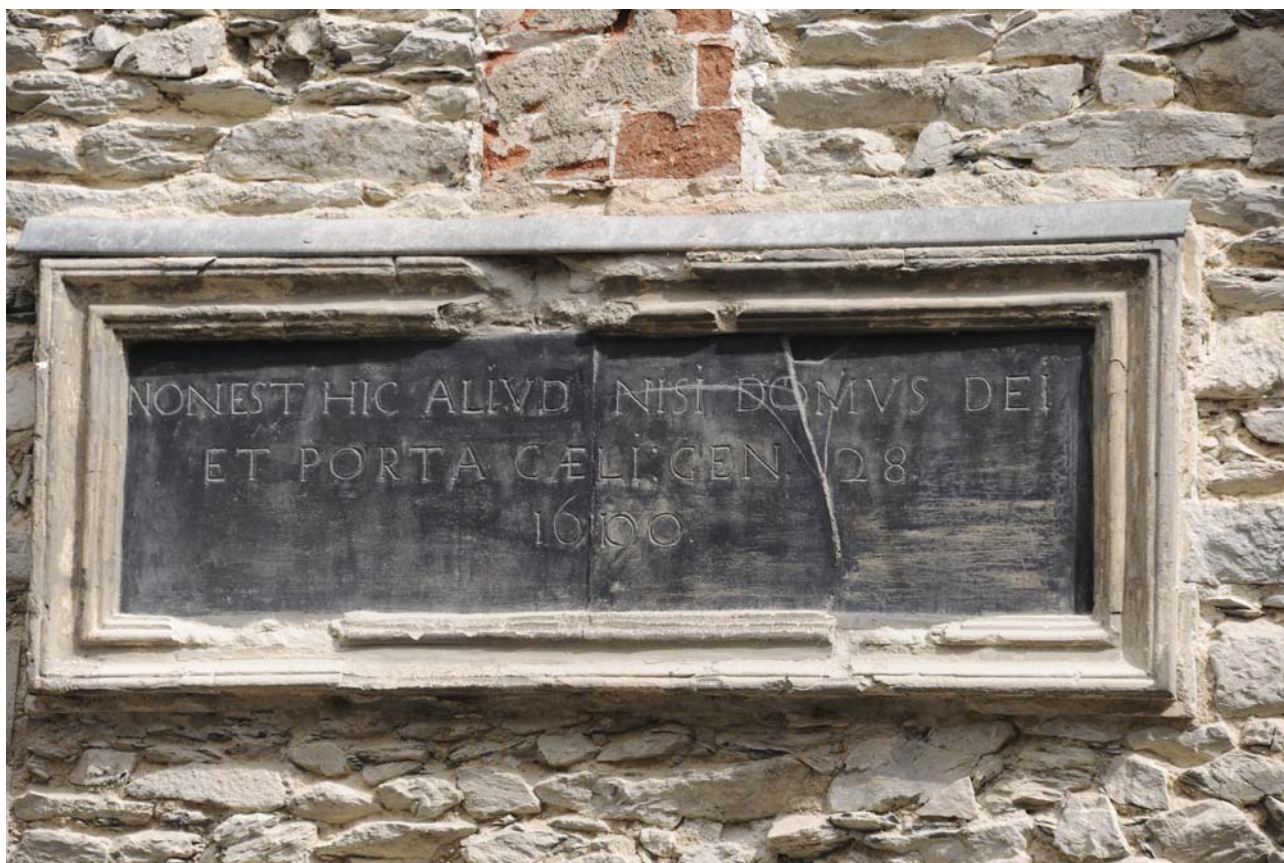 NON EST HIC ALIVD NISI DOMVS DEI
ET PORTA CÆLI. GEN. 28.
1600.